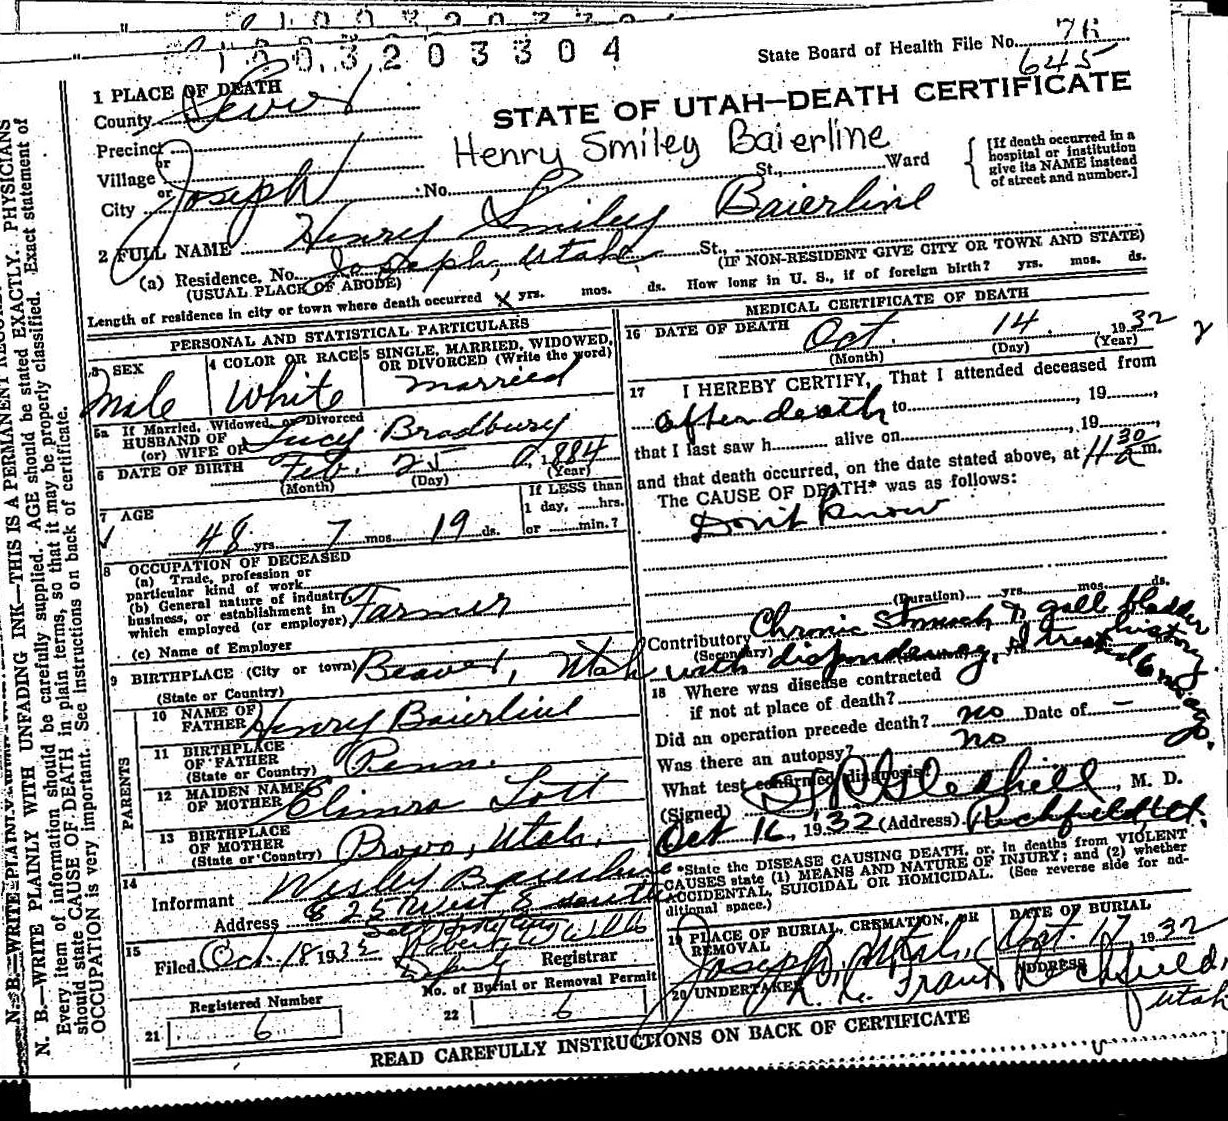 1003203304
State Board of Health File No. 76
645
1 PLACE OF DEATH
County Sevier
STATE OF UTAH—DEATH CERTIFICATE
Henry Smiley Baierline
Precinct
or
Village
or
City Joseph No. St., Ward
{ [If death occurred in a
hospital or institution
give its NAME instead
of street and number.]
2 FULL NAME Henry Smiley Baierline
(a) Residence, No. Joseph, Utah St.
(USUAL PLACE OF ABODE)
(IF NON-RESIDENT GIVE CITY OR TOWN AND STATE)
Length of residence in city or town where death occurred X yrs. mos. ds. How long in U. S., if of foreign birth? yrs. mos. ds.
PERSONAL AND STATISTICAL PARTICULARS
3 SEX
Male
4 COLOR OR RACE
White
5 SINGLE, MARRIED, WIDOWED,
OR DIVORCED (Write the word)
married
5a If Married, Widowed, or Divorced
HUSBAND OF
(or) WIFE OF Lucy Bradbury
6 DATE OF BIRTH Feb. 25 1884
(Month) (Day) (Year)
7 AGE
48 yrs. 7 mos. 19 ds.
If LESS than
1 day, hrs.
or min.?
8 OCCUPATION OF DECEASED
(a) Trade, profession or
particular kind of work
(b) General nature of industry,
business, or establishment in
which employed (or employer) Farmer
(c) Name of Employer
9 BIRTHPLACE (City or town) Beaver, Utah
(State or Country)
PARENTS
10 NAME OF
FATHER Henry Baierline
11 BIRTHPLACE
OF FATHER
(State or Country) Penn.
12 MAIDEN NAME
OF MOTHER Lott
13 BIRTHPLACE
OF MOTHER
(State or Country) Provo, Utah.
14
Informant Wesley Baierline
Address 825 West 8 South
15
Filed Oct. 18 1932 Registrar
Registered Number
21 6
No. of Burial or Removal Permit
22 6
MEDICAL CERTIFICATE OF DEATH
16 DATE OF DEATH Oct. 14 1932
(Month) (Day) (Year)
17 I HEREBY CERTIFY, That I attended deceased from
after death to , 19 ,
that I last saw h alive on , 19 ,
and that death occurred, on the date stated above, at 11 30 a m.
The CAUSE OF DEATH* was as follows:
Don't know
(Duration) yrs. mos. ds.
Contributory Chronic Stomach & gall bladder history
(Secondary) with dispondency, I treated 6 mo. ago.
18 Where was disease contracted
if not at place of death?
Did an operation precede death? no Date of —
Was there an autopsy? no
What test confirmed diagnosis?
(Signed) Gledhill, M. D.
Oct 16, 1932 (Address) Richfield, Ut.
*State the DISEASE CAUSING DEATH, or, in deaths from VIOLENT
CAUSES state (1) MEANS AND NATURE OF INJURY; and (2) whether
ACCIDENTAL, SUICIDAL OR HOMICIDAL. (See reverse side for ad-
ditional space.)
19 PLACE OF BURIAL, CREMATION, OR
REMOVAL
Joseph, Utah
DATE OF BURIAL
Oct. 17 1932
20 UNDERTAKER
ADDRESS
Richfield, Utah
READ CAREFULLY INSTRUCTIONS ON BACK OF CERTIFICATE
N. B.—WRITE PLAINLY WITH UNFADING INK—THIS IS A PERMANENT RECORD.
Every item of information should be carefully supplied. AGE should be stated EXACTLY. PHYSICIANS
should state CAUSE OF DEATH in plain terms, so that it may be properly classified. Exact statement of
OCCUPATION is very important. See instructions on back of certificate.